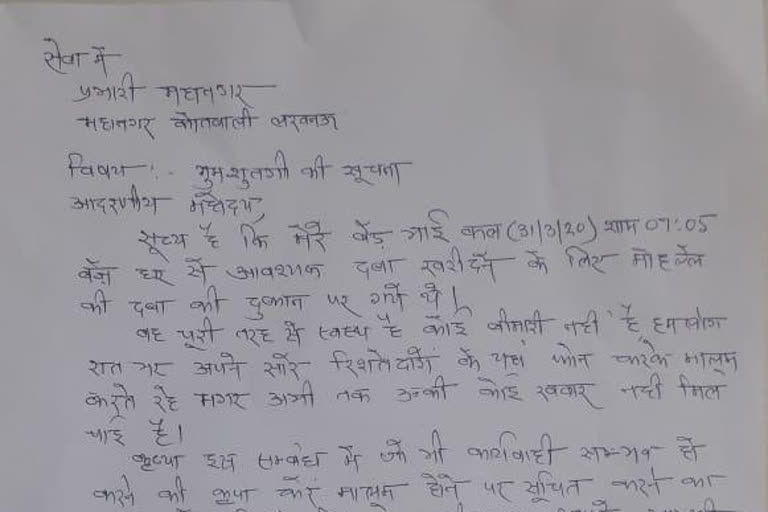 सेवा में
प्रभारी महानगर
महानगर कोतवाली लखनऊ
विषय :- गुमशुतगी की सूचना
आदरणीय महोदय,
सूच्य है कि मेरे बड़े भाई कल (31/3/20) शाम 07:05
बजे घर से आवश्यक दवा खरीदने के लिए मोहल्ले
की दवा की दुकान पर गये थे।
वह पूरी तरह से स्वस्थ है कोई बीमारी नही है हमलोग
रात भर अपने सारे रिशतेदारों के यहां फोन करके मालूम
करते रहे मगर अभी तक उनकी कोई खबर नही मिल
पाई है।
कृप्या इस सम्बंध में जो भी कार्यवाही सम्भव हो
करने की कृपा करें मालूम होने पर सूचित करने का